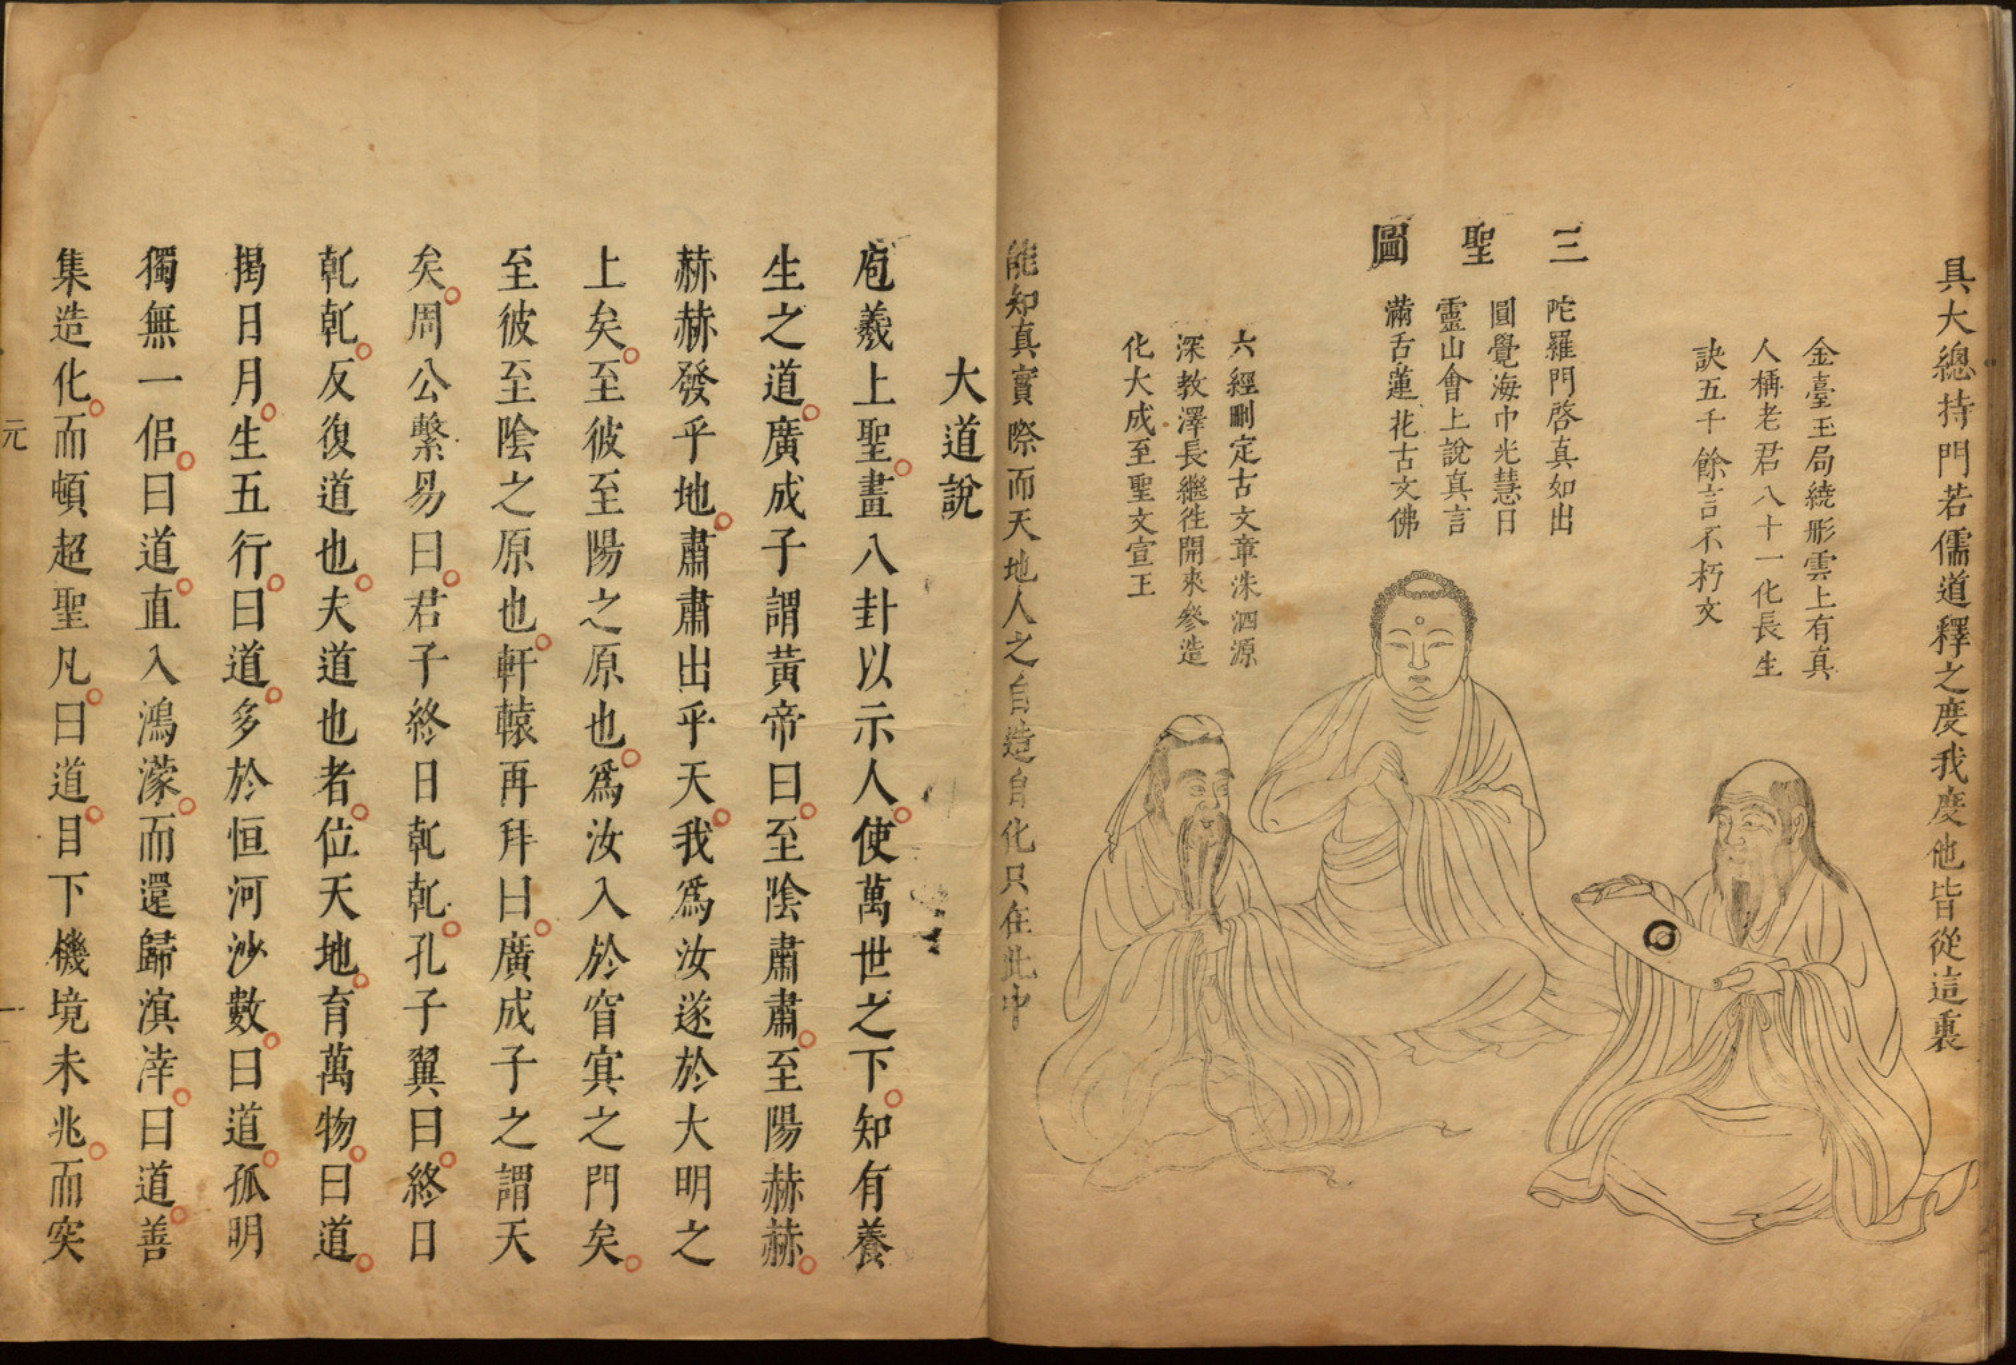 具大總持門若儒道釋之度我度他皆從這裏
三聖圖
金臺玉局繞彤雲上有真
人稱老君八十一化長生
訣五千餘言不朽文
陀羅門啓真如出
圓覺海中光慧日
靈山會上說真言
滿舌蓮花古文佛
六經刪定古文章洙泗源
深教澤長繼徃開來參造
化大成至聖文宣王
能知真實際而天地人之自造自化只在此中
大道說
庖羲上聖畫八卦以示人使萬世之下知有養
生之道廣成子謂黃帝曰至陰肅肅至陽赫赫
赫赫發乎地肅肅出乎天我爲汝遂於大明之
上矣至彼至陽之原也爲汝入於窅冥之門矣
至彼至陰之原也軒轅再拜曰廣成子之謂天
矣周公繫易曰君子終日乾乾孔子翼曰終日
乾乾反復道也夫道也者位天地育萬物曰道
揭日月生五行曰道多於恒河沙數曰道孤明
獨無一侶曰道直入鴻濛而還歸溟涬曰道善
集造化而頓超聖凡曰道目下機境未兆而突
元
一